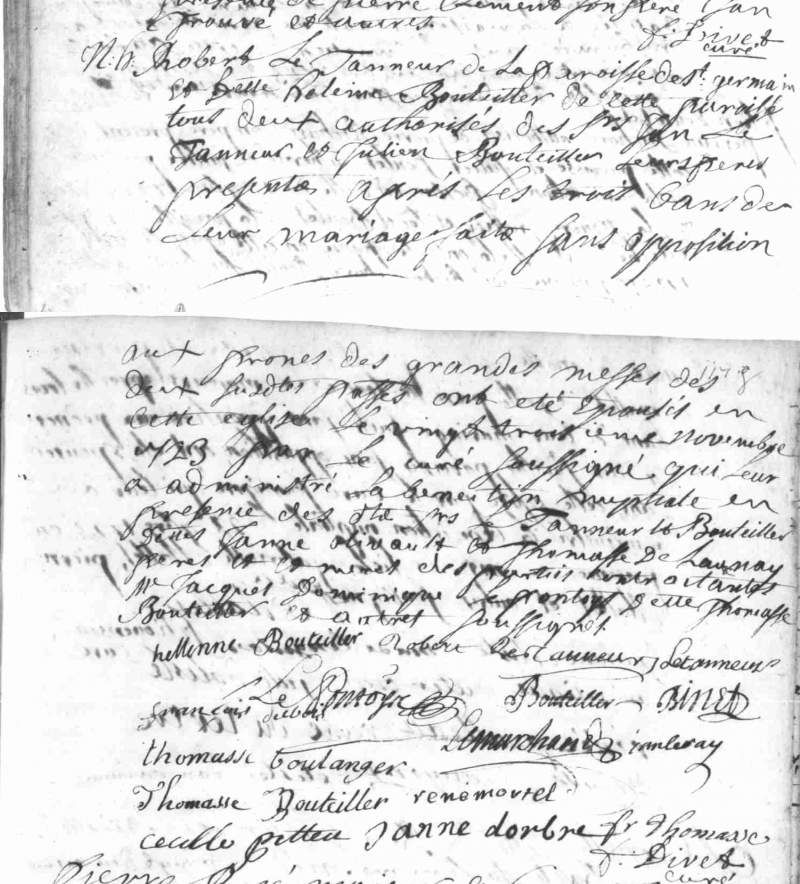 presence de pierre Clement son frere Jan
trouvé et autres
f. Divet
curé
N. h. Robert Le Tanneur de La Paroisse de st. germain
et dette heleine Bouteiller de cette paroisse
tous deux authorisés des srs Jan Le
Tanneur et Julien Bouteiller Leurs peres
presents apres Les trois bans de
Leur mariage faits sans opposition
aux prones des grandes messes des
deux susdtes ont eté Epousés en
cette eglise Le vingt troisieme novembre
1723 par Le curé soussigné qui Leur
a administré La benediction nuptiale en
presence des dts Le Tanneur et Bouteiller
dttes Janne et Thomasse De Launay
peres et meres des partis contractantes
Mr Jacques Dominique Le pontoys dette Thomasse
Bouteiller et autres soussignes
hellenne Bouteiller Robert Le tanneur J Letanneur
Le Pontoys Bouteiller BINET
francois dubois
Lemarchand janLeray
thomasse boulanger
Thomasse Bouteiller rené martel
cecille pitteu Janne dorbre fr Thomasse
f. Divet
curé
Pierre